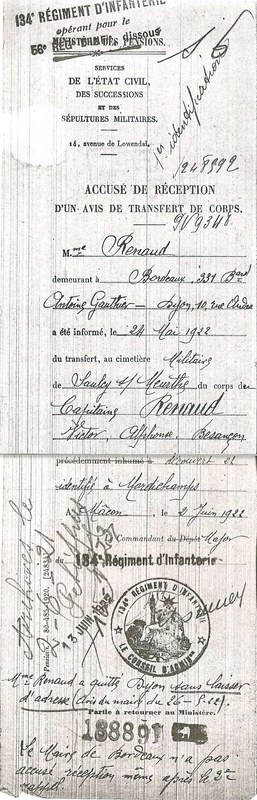 134e RÉGIMENT D'INFANTERIE
opérant pour le
56e RÉG dissous
MINISTÈRE DES PENSIONS.
SERVICES
DE L'ÉTAT CIVIL,
DES SUCCESSIONS
ET DES
SÉPULTURES MILITAIRES.
14, avenue de Lowendal.
identification
248892
ACCUSÉ DE RÉCEPTION
D'UN AVIS DE TRANSFERT DE CORPS.
9V9348
Mme Renaud
demeurant à Bordeaux, 331 Bard
Antoine Gauthier — Dijon, 10, rue Andra
a été informé, le 24 Mai 1922
du transfert, au cimetière Militaire
de Saulcy s/ Meurthe du corps de
Capitaine Renaud
Victor, Alphonse, Besançon
précédemment inhumé à découvert et
identifié à Mendichamps
A Mâcon, le 2 Juin 1922
Le Commandant du Dépôt Major
du 134e Régiment d'Infanterie
134e RÉGIMENT D'INFANTERIE
LE CONSEIL D'ADMIN
13 JUIN 1925
Mme Renaud a quitté Dijon sans laisser
d'adresse (avis du maire du 26-5-22).
Partie à retourner au Ministère.
188891
Le Maire de Bordeaux n'a pas
accusé réception même après le 2e
rappel.